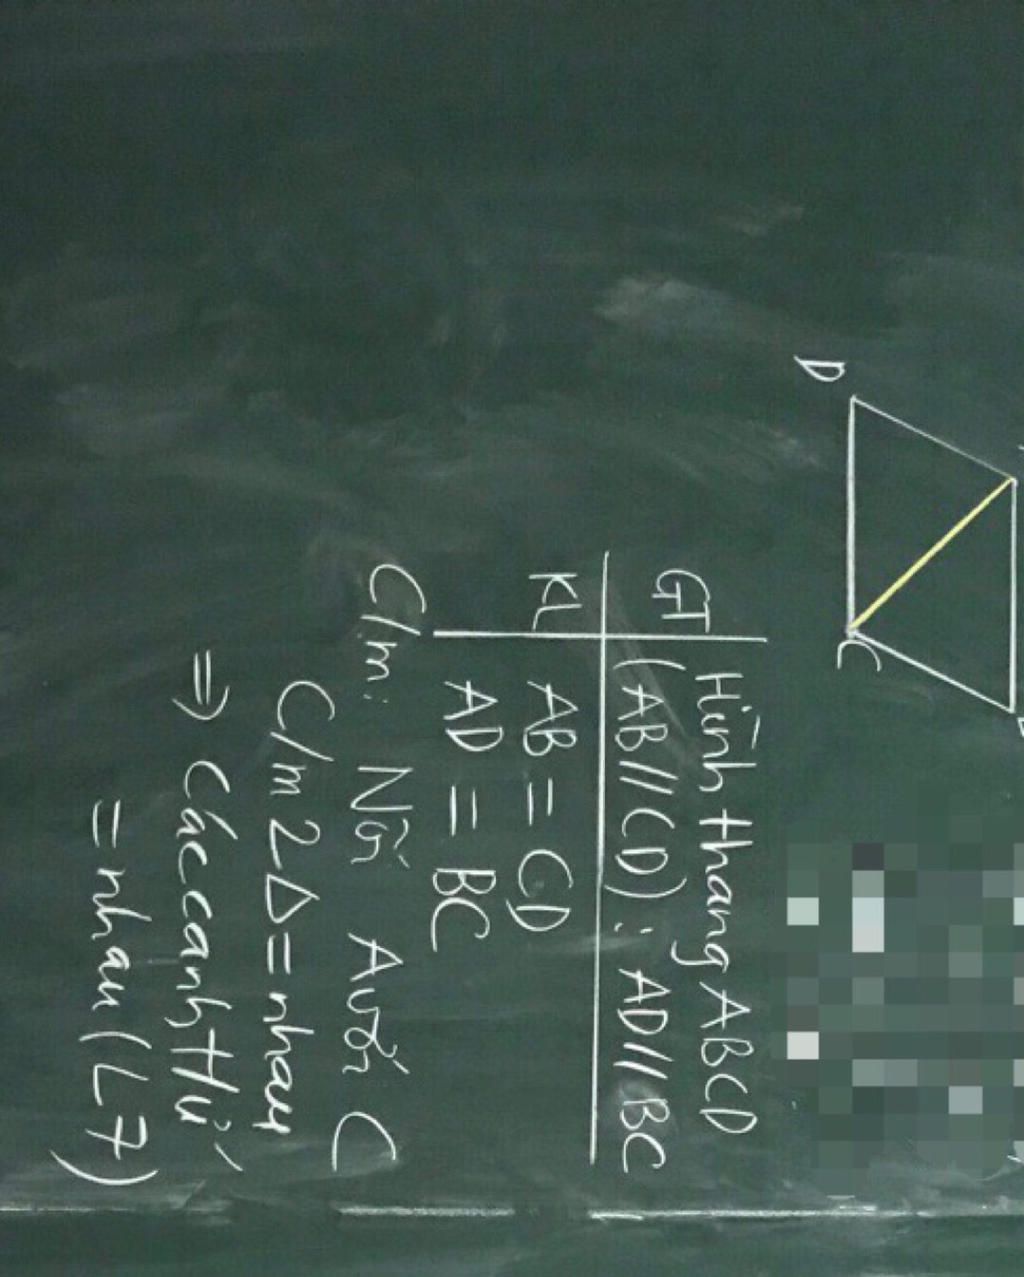 D
C
GT Hình thang ABCD
(AB//CD): AD//BC
KL AB = CD
AD = BC
C/m: Nối A với C
C/m 2Δ = nhau
=> Các cạnh t/ư
= nhau (L7)